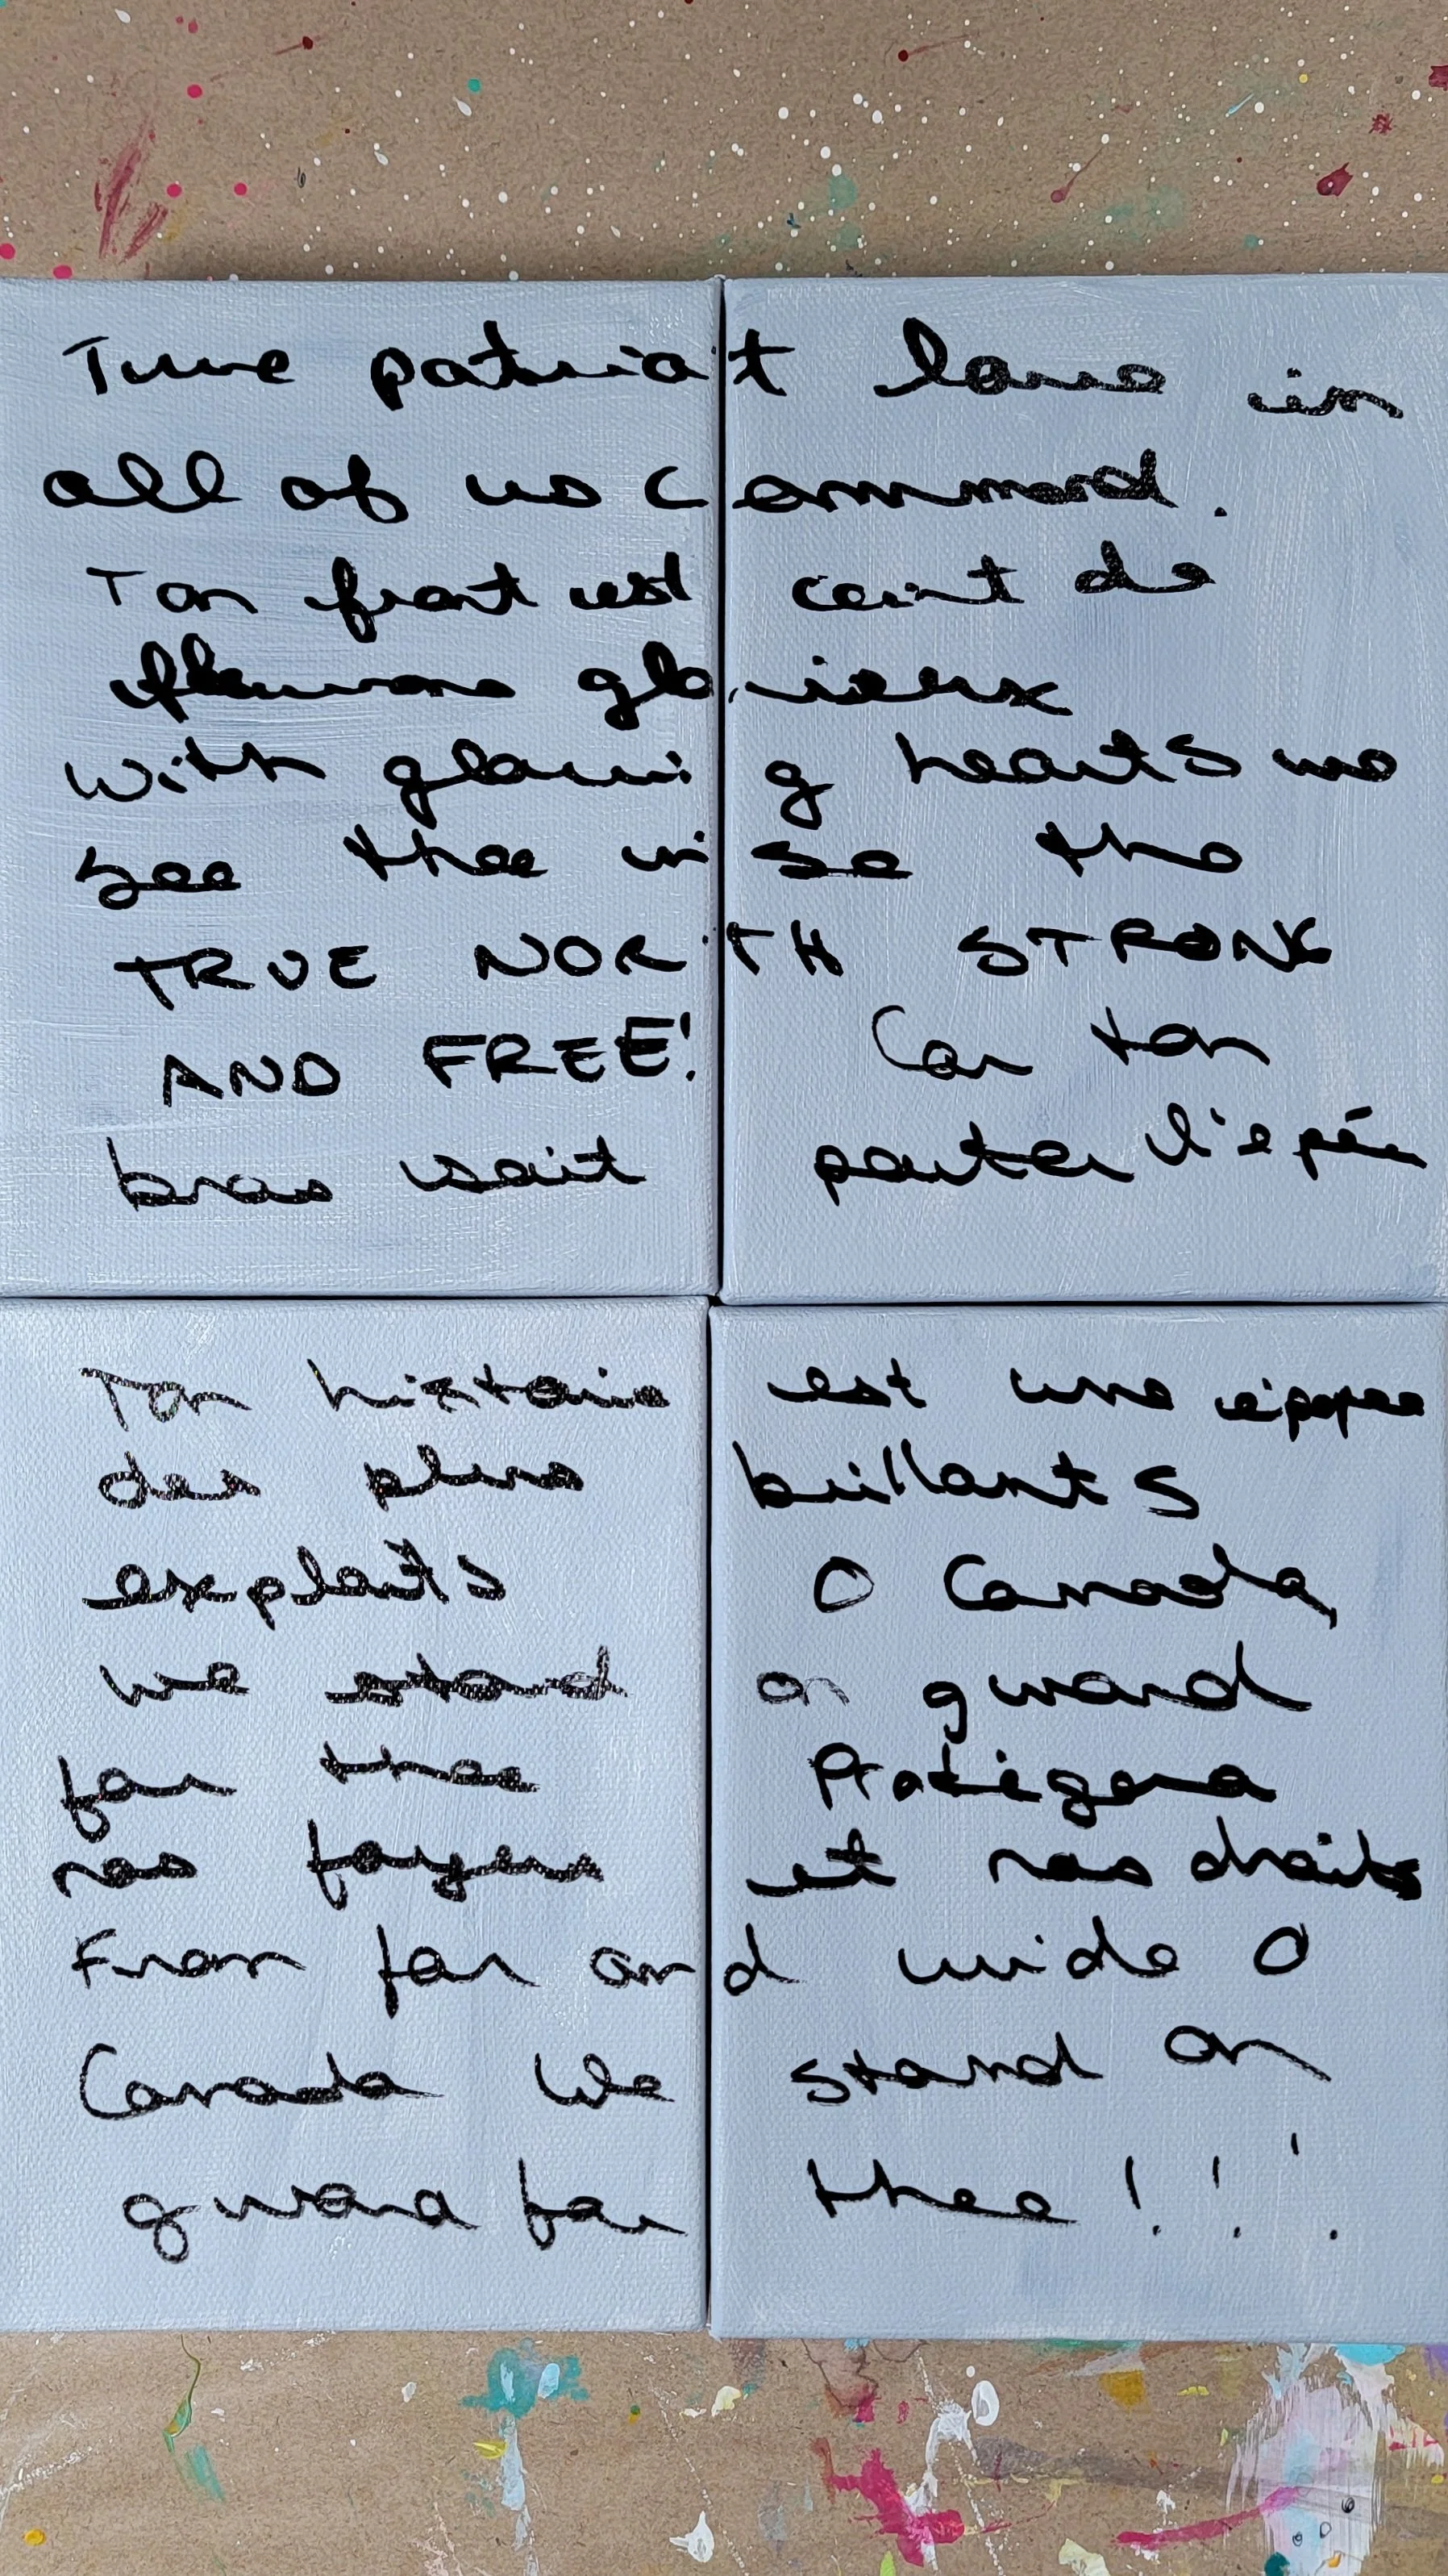 True patriot love in
all of us command.
Ton front est ceint de
fleurons glorieux
with glowing hearts we
see thee rise the
TRUE NORTH STRONG
AND FREE! Car ton
bras sait porter l'epée
Ton histoire est une épopee
des plus brillants
exploits O Canada,
we stand on guard
for thee Protégera
nos foyers et nos droits
From far and wide O
Canada We stand on
guard for thee!!!